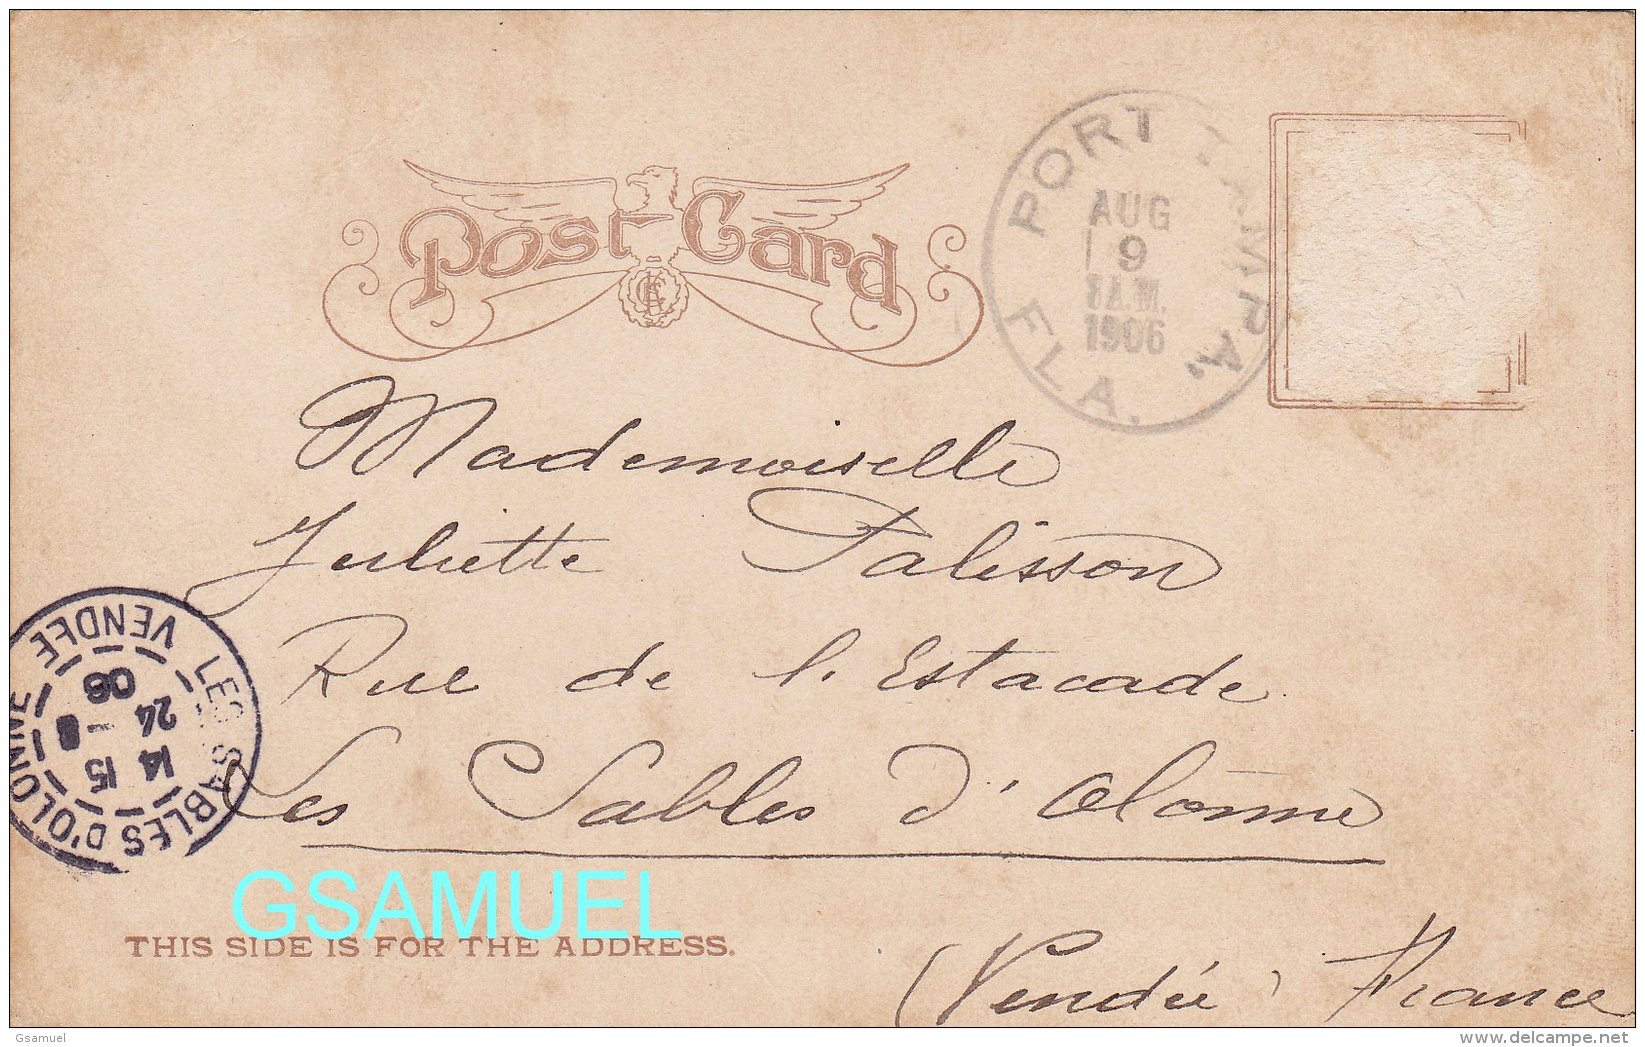 Post Card
PORT TAMPA,
AUG
9
1 A.M.
1906
FLA.
Mademoiselle
Juliette Palisson
Rue de l'Estacade
Les Sables d'Olonne
LES SABLES D'OLONNE
14 15
24 - 8
06
VENDEE
GSAMUEL
THIS SIDE IS FOR THE ADDRESS.
(Vendée) France
Gsamuel
delcampe.net